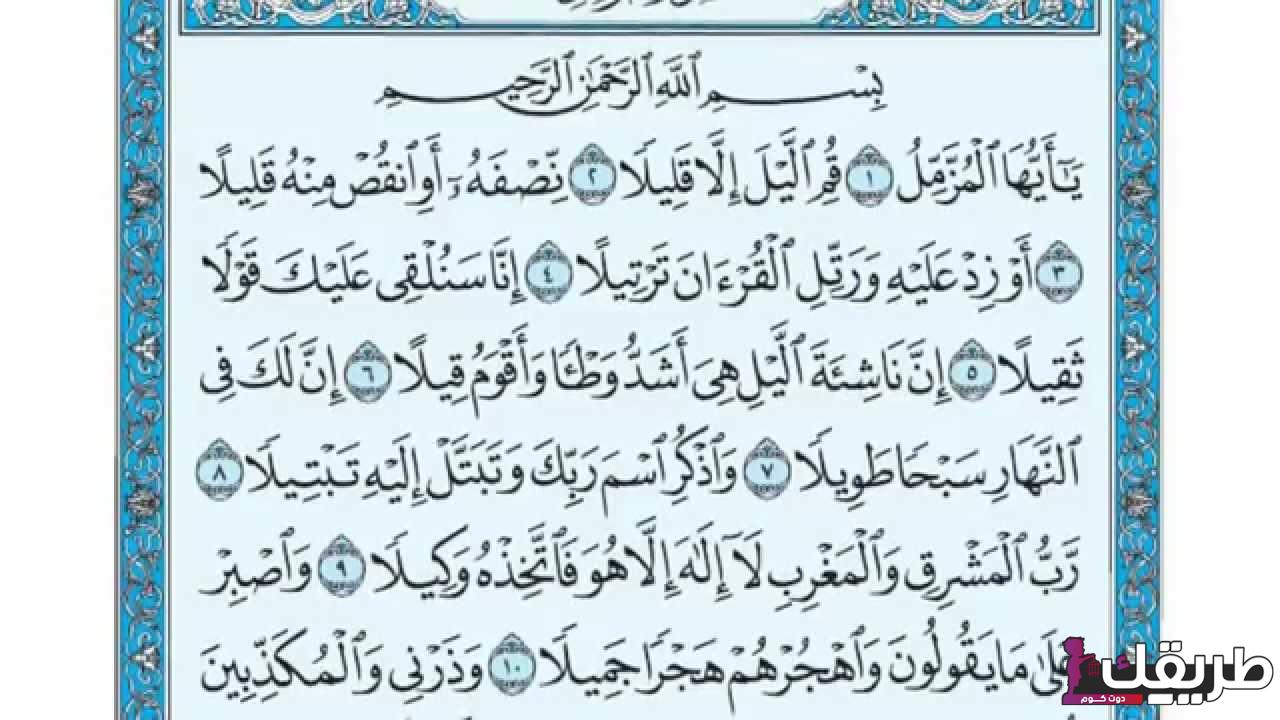 بِسْمِ ٱللَّهِ ٱلرَّحْمَٰنِ ٱلرَّحِيمِ
يَٰٓأَيُّهَا ٱلْمُزَّمِّلُ ١ قُمِ ٱلَّيْلَ إِلَّا قَلِيلًا ٢ نِّصْفَهُۥٓ أَوِ ٱنقُصْ مِنْهُ قَلِيلًا
٣ أَوْ زِدْ عَلَيْهِ وَرَتِّلِ ٱلْقُرْءَانَ تَرْتِيلًا ٤ إِنَّا سَنُلْقِي عَلَيْكَ قَوْلًا
ثَقِيلًا ٥ إِنَّ نَاشِئَةَ ٱلَّيْلِ هِيَ أَشَدُّ وَطْـًٔا وَأَقْوَمُ قِيلًا ٦ إِنَّ لَكَ فِي
ٱلنَّهَارِ سَبْحًا طَوِيلًا ٧ وَٱذْكُرِ ٱسْمَ رَبِّكَ وَتَبَتَّلْ إِلَيْهِ تَبْتِيلًا ٨
رَّبُّ ٱلْمَشْرِقِ وَٱلْمَغْرِبِ لَآ إِلَٰهَ إِلَّا هُوَ فَٱتَّخِذْهُ وَكِيلًا ٩ وَٱصْبِرْ
عَلَىٰ مَا يَقُولُونَ وَٱهْجُرْهُمْ هَجْرًا جَمِيلًا ١٠ وَذَرْنِي وَٱلْمُكَذِّبِينَ
طريقك
دوت كوم